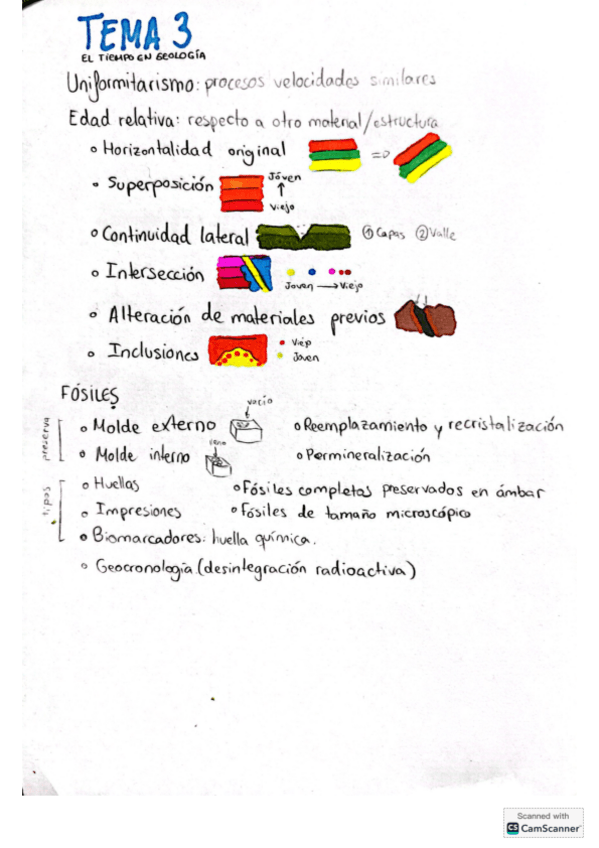 TEMA 3
EL TIEMPO EN GEOLOGÍA
Uniformitarismo: procesos velocidades similares
Edad relativa: respecto a otro material/estructura
o Horizontalidad original =>
• Superposición Jóven ↑ Viejo
o Continuidad lateral ① Capas ② Valle
o Intersección Joven → Viejo
o Alteración de materiales previos
o Inclusiones • Viejo • Joven
FÓSILES
preserva
o Molde externo vacío o Reemplazamiento y recristalización
o Molde interno o Permineralización
tipos
o Huellas o Fósiles completos preservados en ámbar
o Impresiones o Fósiles de tamaño microscópico
o Biomarcadores: huella química.
o Geocronología (desintegración radioactiva)
Scanned with
CS CamScanner